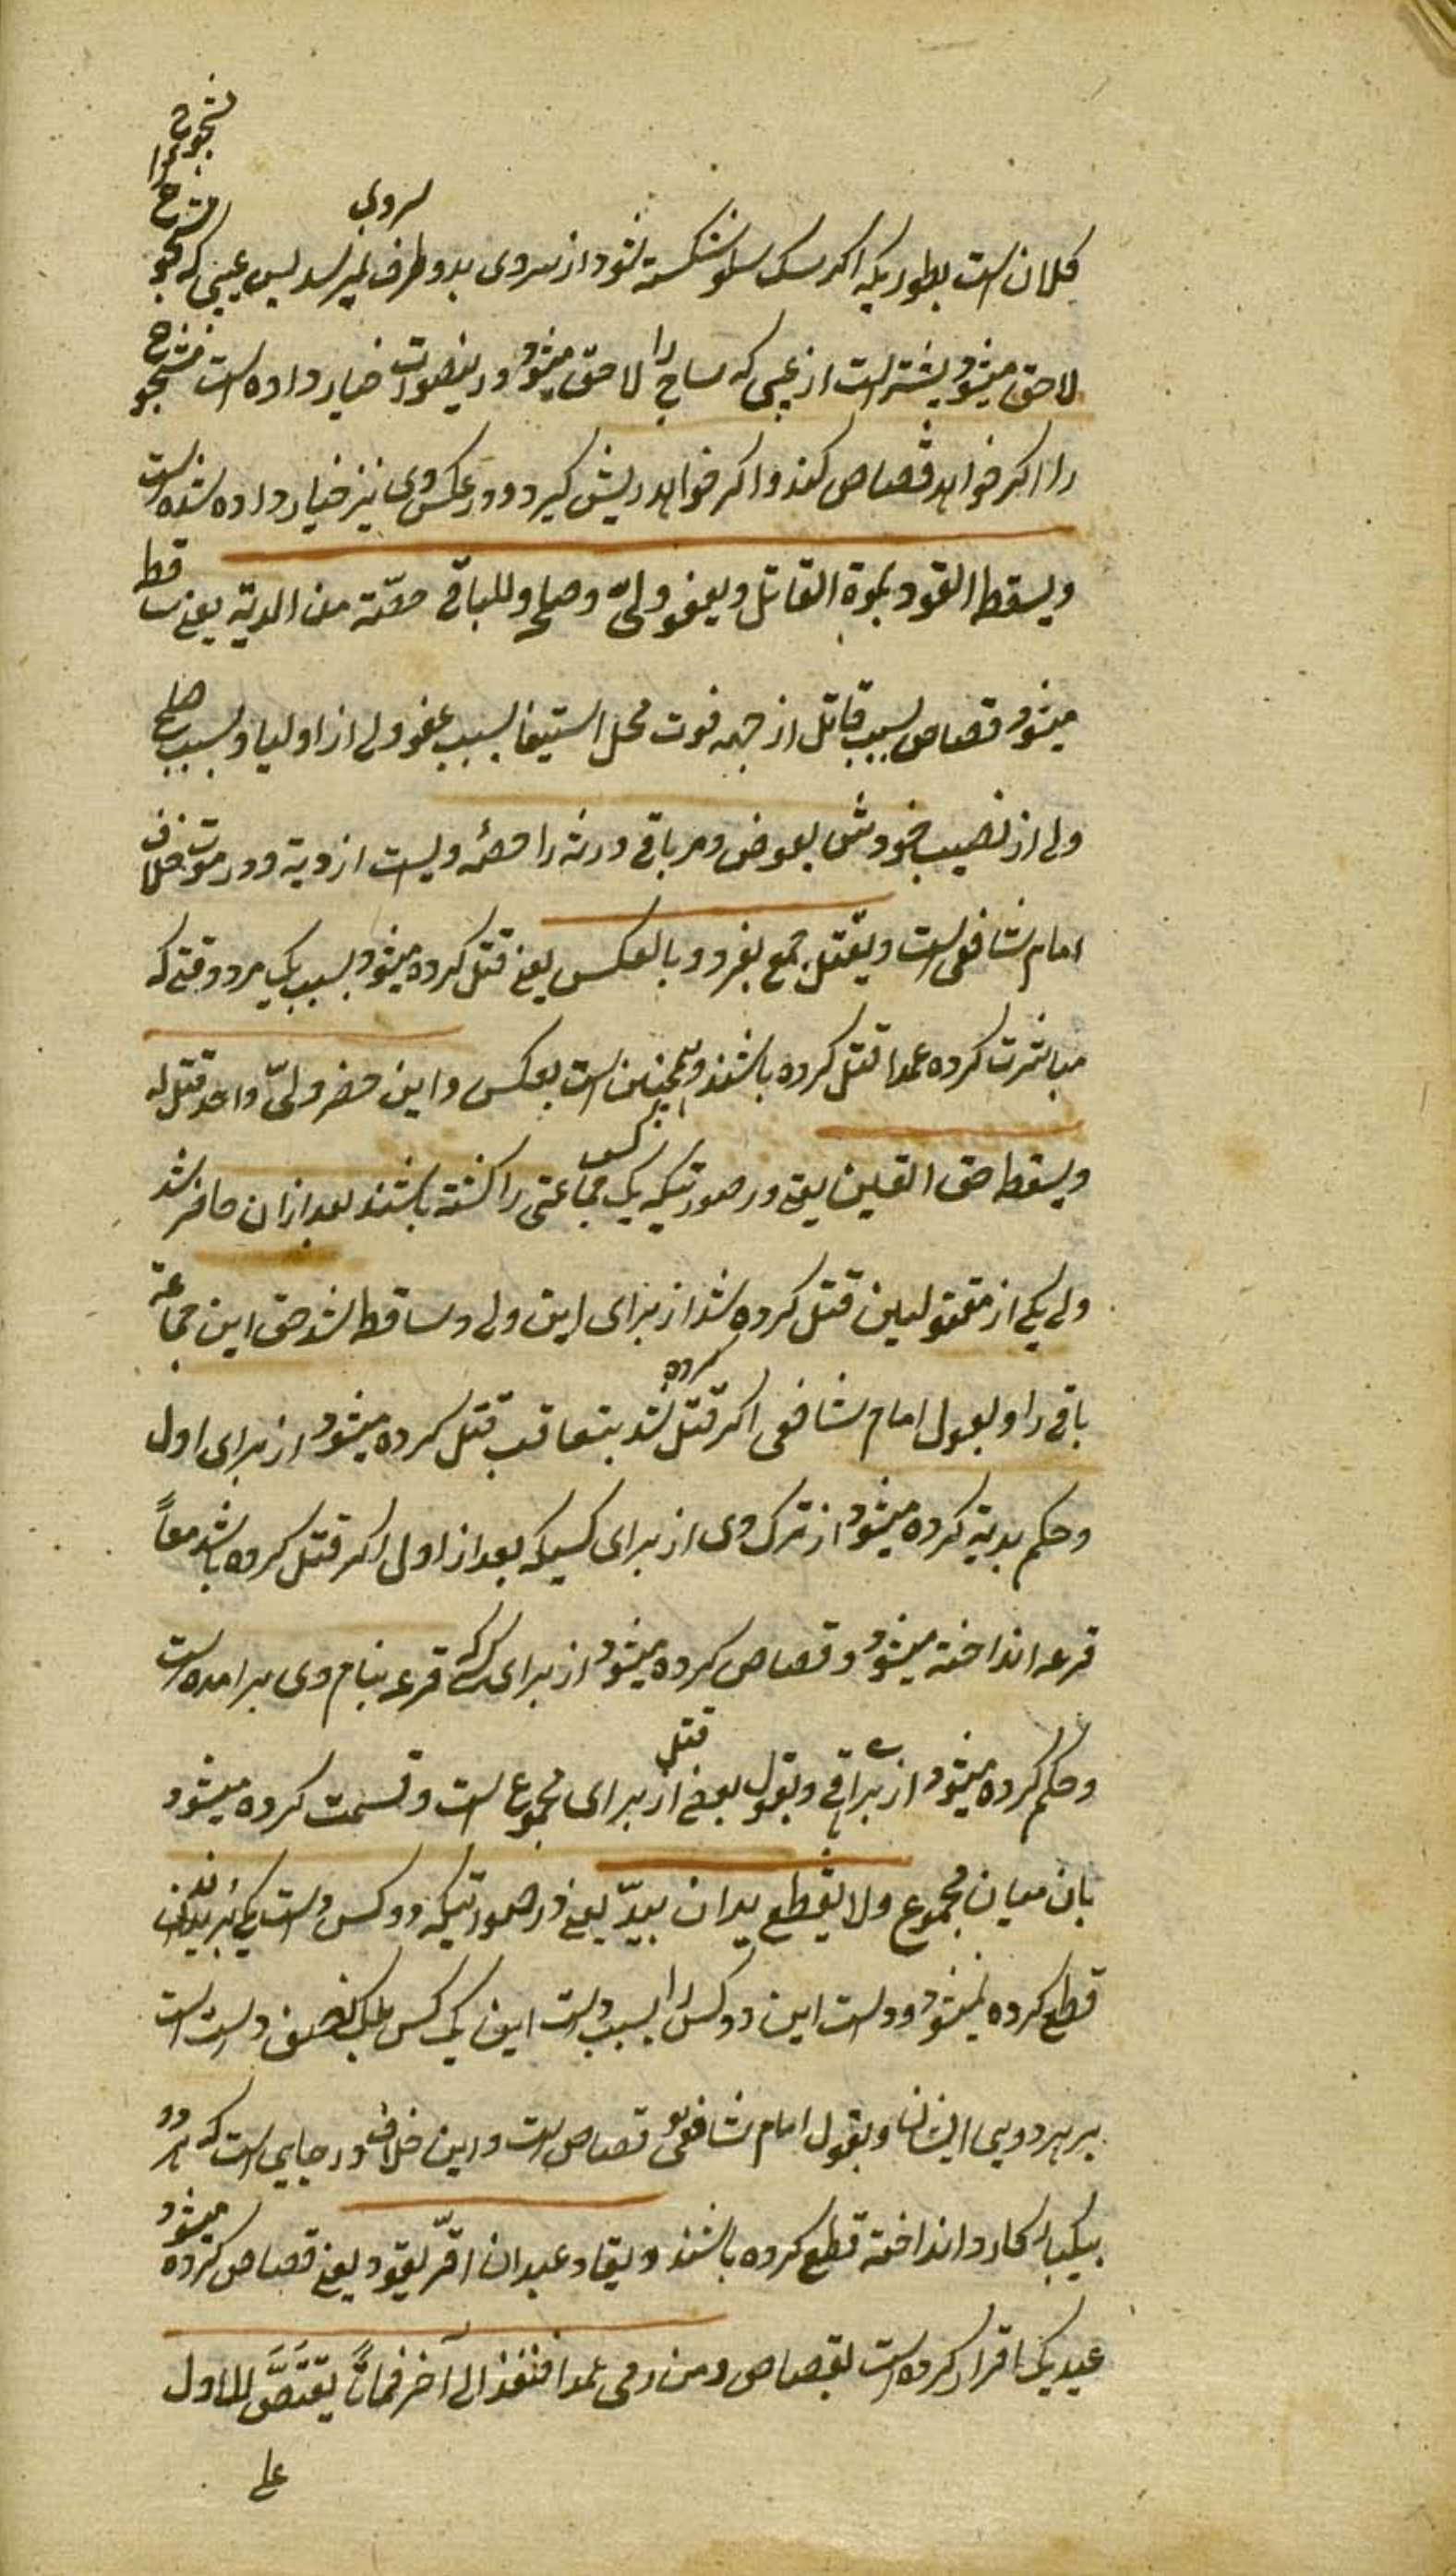 مشجوج را
سروی
کلان است بطوریکه اکر مسک سلو شکسته شود از سروی بدو طرف نمیرسد پس عیبی که مشجوج
لاحق میشود بیشتر است از عیبی که ساج را لاحق میشود درینصورت خیار داده است مشجوج
را اکر خواهد قصاص کند و اکر خواهد ریش کیرد و در عکس وی نیز خیار داده شده است
ویسقط القود بموة القاتل وبعفو ولیّ وصلحه وللباقی حصّته من الدیة یعنی ساقط
میشود قصاص بسبب قاتل از جهة فوت محل استیفا بسبب عفو ولی از اولیا و بسبب صلح
ولی از نصیب خودش بعوض و مر باقی ورثه را حصّه ویست از دیة و در موت خلاف
امام شافعی است ویقتل جمع بفرد وبالعکس یعنی قتل کرده میشود بسبب یک مرد وقتی که
مباشرت کرده عمدا قتل کرده باشند و همچنین است بعکس و این حضر ولیّ واحد قتل له
ویسقط حق القلین یعنی در صورتیکه یک کس جماعتی را کشته باشند بعد ازان حاضر شد
ولی یکی از مقتولین قتل کرده شد از برای این ولی و ساقط شد حق این جماعة
باقی را و بقول امام شافعی اکر قتل کرده شد بتعاقب قتل کرده میشود از برای اول
و حکم بدیة کرده میشود از ترک وی از برای کسیکه بعد از اولی اکر قتل کرده باشد معاً
قرعه انداخته میشود و قصاص کرده میشود از برای کسی که قرعه بنام وی برامده است
و حکم کرده میشود از برای باقی و بقول بعضی قتل از برای مجموع است و قسمت کرده میشود
بان میان مجموع ولا یقطع یدان بیدّ یعنی در صورتیکه دو کس دست یکی بریدند
قطع کرده نمیشود دست این دو کس را بسبب دست این یک کس بلک نصف دست است
بر هر دویی ایشان و بقول امام شافعی قصاص است و این خلاف در جایی است که هر دو
بیکبار کارد انداخته قطع کرده باشند ویقاد عبدان اقرّ بقود یعنی قصاص کرده میشود
عبدیکه اقرار کرده است بقصاص ومن رمی عمدا فنفذ الی آخر فماتا یقتصّ للاول
علی